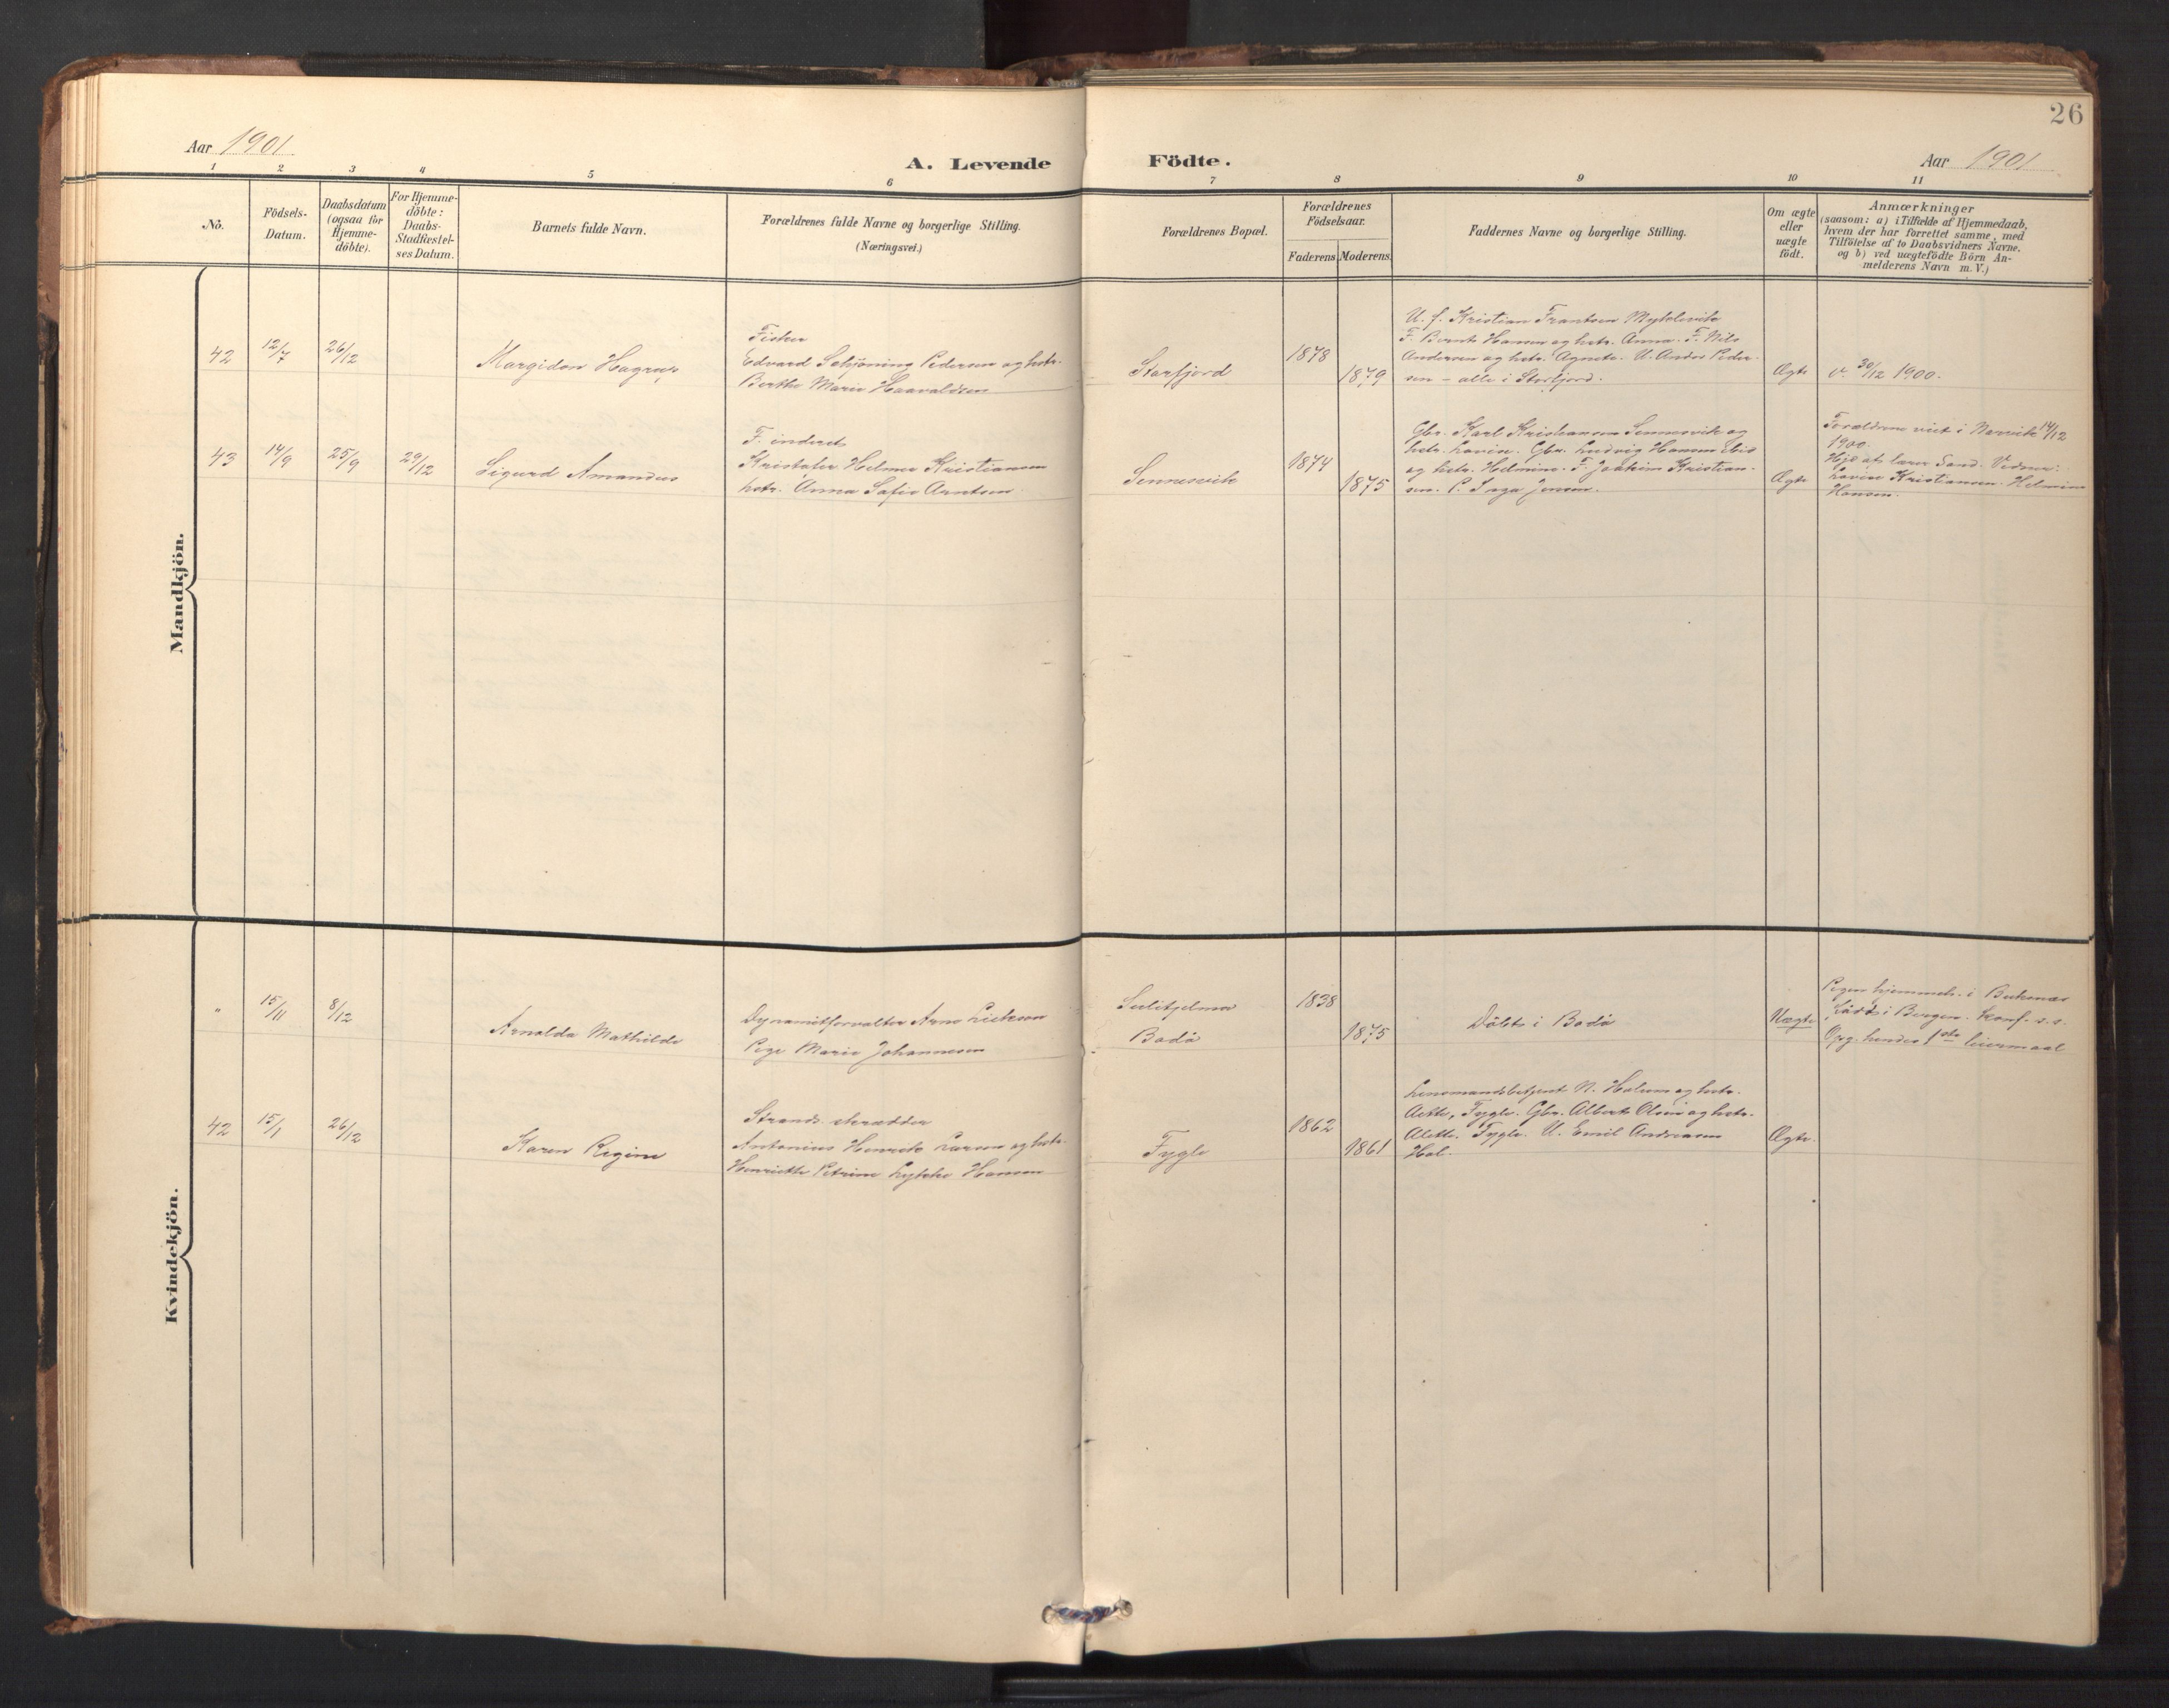 26
Aar 1901
A. Levende
Födte.
Aar 1901
1 2 3 4 5 6 7 8 9 10 11
No.
Födsels-
Datum.
Daabsdatum
(ogsaa for
Hjemme-
döbte).
For Hjemme-
döbte:
Daabs-
Stadfæstel-
ses Datum.
Barnets fulde Navn.
Forældrenes fulde Navne og borgerlige Stilling.
(Næringsvei.)
Forældrenes Bopæl.
Forældrenes
Födselsaar.
Faderens Moderens.
Faddernes Navne og borgerlige Stilling.
Om ægte
eller
uægte
födt.
Anmærkninger
(saasom: a) i Tilfælde af Hjemmedaab,
hvem der har forrettet samme, med
Tilföielse af to Daabsvidners Navne,
og b) ved uægtefödte Börn An-
melderens Navn m. V.)
Mandkjön.
42
12/7
26/12
Margidon Hagrup
Fisker
Edvard Schjöning Pedersen og hstr.
Berthe Marie Haavaldsen
Storfjord
1878
1879
U. f. Kristian Frantsen Myklevik
F. Bernt Hansen og hstr. Anna. F. Nils
Andersen og hstr. Agnete. U. Andor Peder-
sen - alle i Storfjord.
Ægte
v. 30/12 1900.
43
14/9
25/9
29/12
Sigurd Amandus
F. inderst
Kristofer Helmer Kristiansen
hstr. Anna Sofie Arntsen
Sennesvik
1874
1875
Gbr. Karl Kristiansen Sennesvik og
hstr. Lovise. Gbr. Ludvig Hansen ibid
og hstr. Helmine. F. Joakim Kristian-
sen. P. Inga Jensen.
Ægte
Forældrene viet i Narvik 14/12
1900.
Hjd af lærer Sand. Vidner:
Lovise Kristiansen. Helmine
Hansen.
Kvindekjön.
"
15/11
8/12
Arnolda Mathilde
Dynamitforvalter Arne
Pige Marie Johannesen
Sulitjelma
Bodö
1838
1875
Döbt i Bodö
Uægte
Pigen hjemmeh. i Buksnes
Född i Bergen. Konf. s. s.
Opg. hendes 1ste leiermaal
42
15/1
26/12
Karen Regine
Strands. skrædder
Antonius Henrik Larsen og hstr.
Henriette Petrine Lykke Hansen
Fygle
1862
1861
Lensmandsbetjent N. Holum og hstr.
Fygle. Gbr. Albert Olsen og hstr.
Alette, Fygle. U. Emil Andreasen
Hol.
Ægte.